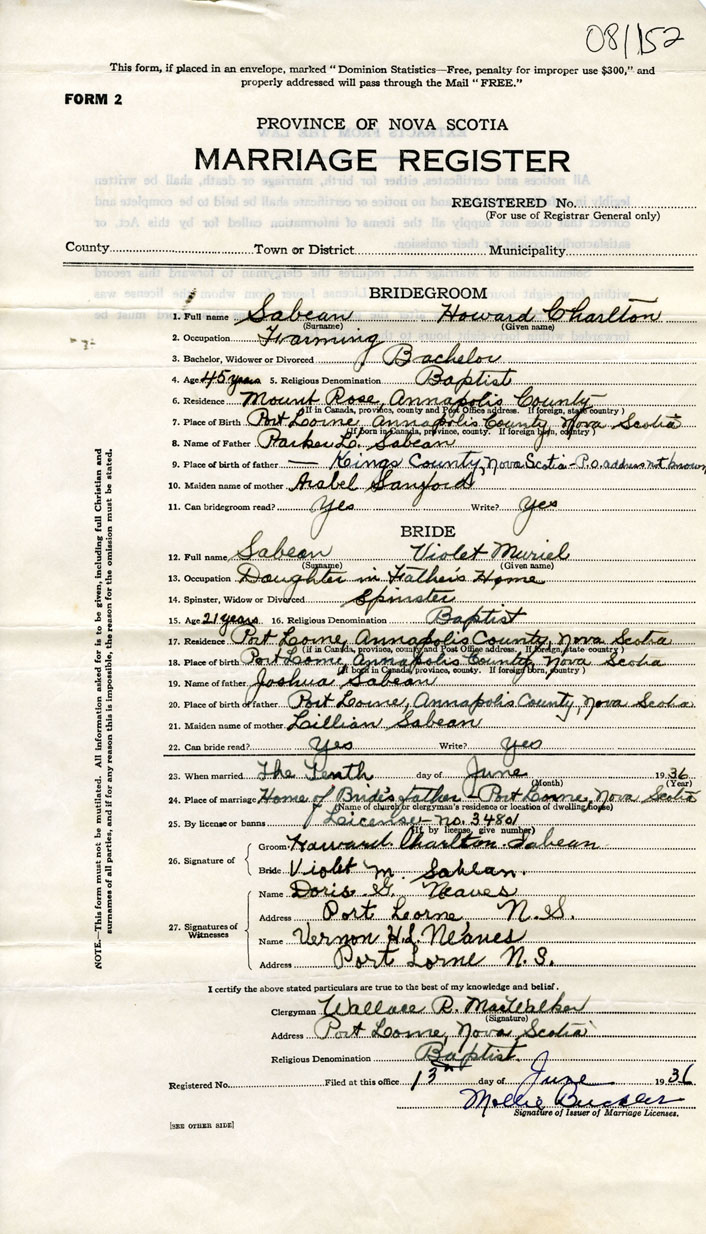 08/152
This form, if placed in an envelope, marked "Dominion Statistics—Free, penalty for improper use $300," and
properly addressed will pass through the Mail "FREE."
FORM 2
PROVINCE OF NOVA SCOTIA
MARRIAGE REGISTER
REGISTERED No.
(For use of Registrar General only)
County Town or District Municipality
BRIDEGROOM
1. Full name Sabean Howard Charlton
(Surname) (Given name)
2. Occupation Farming
3. Bachelor, Widower or Divorced Bachelor
4. Age 45 years 5. Religious Denomination Baptist
6. Residence Mount Rose, Annapolis County
(If in Canada, province, county and Post Office address. If foreign, state country)
7. Place of Birth Port Lorne, Annapolis County, Nova Scotia
(If born in Canada, province, county. If foreign born, country)
8. Name of Father Parker L. Sabean
9. Place of birth of father — Kings County, Nova Scotia - P.O. address not known
10. Maiden name of mother Arabel Sanford
11. Can bridegroom read? Yes Write? Yes
BRIDE
12. Full name Sabean Violet Muriel
(Surname) (Given name)
13. Occupation Daughter in Father's Home
14. Spinster, Widow or Divorced Spinster
15. Age 21 years 16. Religious Denomination Baptist
17. Residence Port Lorne, Annapolis County, Nova Scotia
(If in Canada, province, county and Post Office address. If foreign, state country)
18. Place of birth Port Lorne, Annapolis County, Nova Scotia
(If born in Canada, province, county. If foreign born, country)
19. Name of father Joshua Sabean
20. Place of birth of father Port Lorne, Annapolis County, Nova Scotia
21. Maiden name of mother Lillian Sabean
22. Can bride read? Yes Write? Yes
23. When married The Tenth day of June 1936
(Month) (Year)
24. Place of marriage Home of Bride's father - Port Lorne, Nova Scotia
(Name of church or clergyman's residence or location of dwelling house)
25. By license or banns License - no. 34801
(If by license, give number)
26. Signature of
Groom Howard Charlton Sabean
Bride Violet M. Sabean.
27. Signatures of Witnesses
Name Doris G. Neaves
Address Port Lorne N.S.
Name Vernon H.L. Neaves
Address Port Lorne N.S.
I certify the above stated particulars are true to the best of my knowledge and belief.
Clergyman Wallace R. MacWalker
(Signature)
Address Port Lorne, Nova Scotia
Religious Denomination Baptist.
Registered No. Filed at this office 13th day of June 1936
Mollie
Signature of Issuer of Marriage Licenses.
[SEE OTHER SIDE]
NOTE.—This form must not be mutilated. All information asked for is to be given, including full Christian and
surnames of all parties, and if for any reason this is impossible, the reason for the omission must be stated.